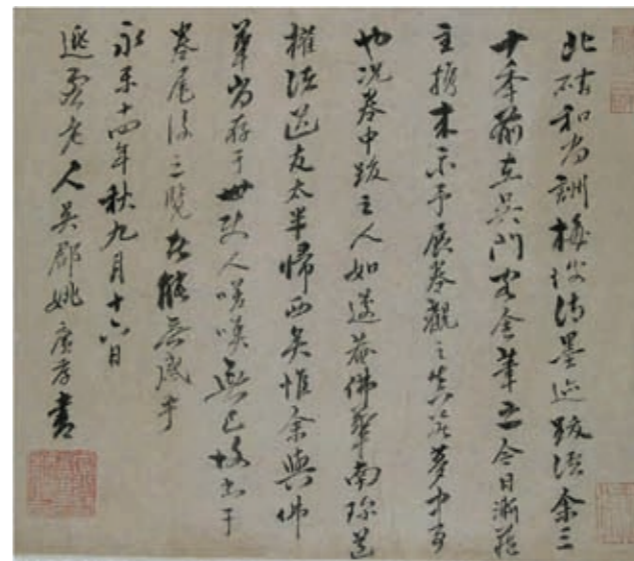 北磵和尚訓梅 墨迹跋語余三
十年前在吳門 今日漸菴
主携來示予展卷觀之真 夢中事
也況卷中跋主人如蘧菴佛華南琛道
權諸道友太半歸西矣惟余與佛
華尚存于世故人 嘆無已故書于
卷尾後之覽者能無感乎
永樂十四年秋九月十六日
逃虛老人吳郡姚廣孝書